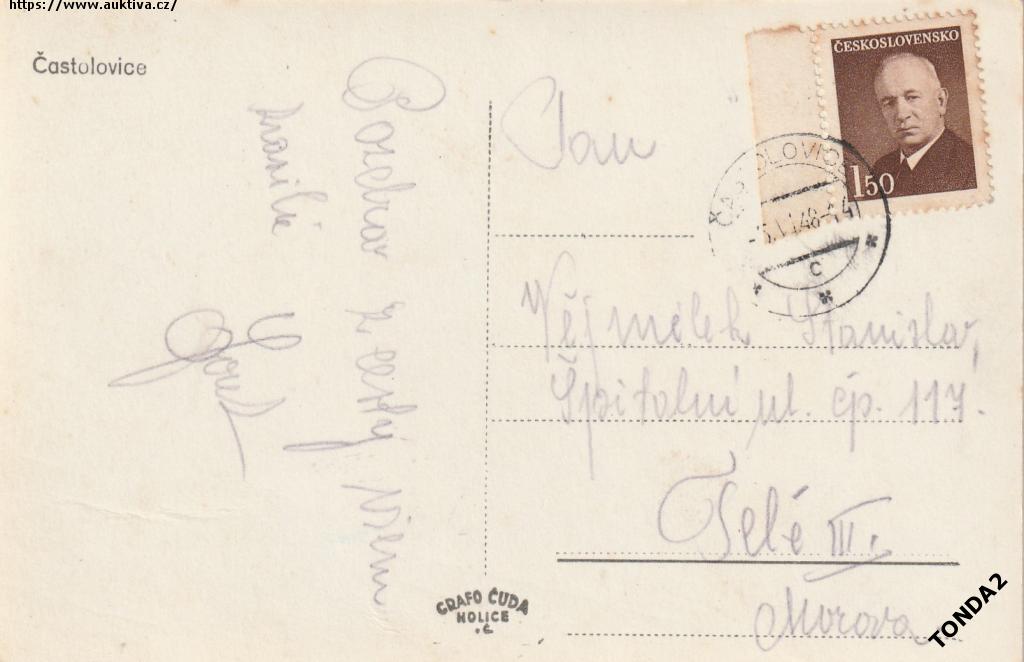 https://www.auktiva.cz/
Častolovice
Pozdrav z cesty všem
ČESKOSLOVENSKO
1 50
ČASTOLOVICE
48-
c
Pan
Vějmělek Stanislav,
Špitolní ul. čp. 117.
Telč III.
Morava
GRAFO ČUDA
HOLICE
.Č
TONDA2